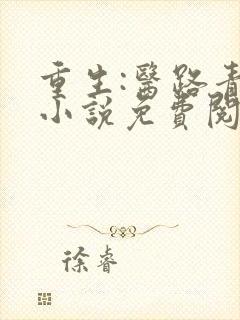 重生:醫路青
小說免費閱
徐睿